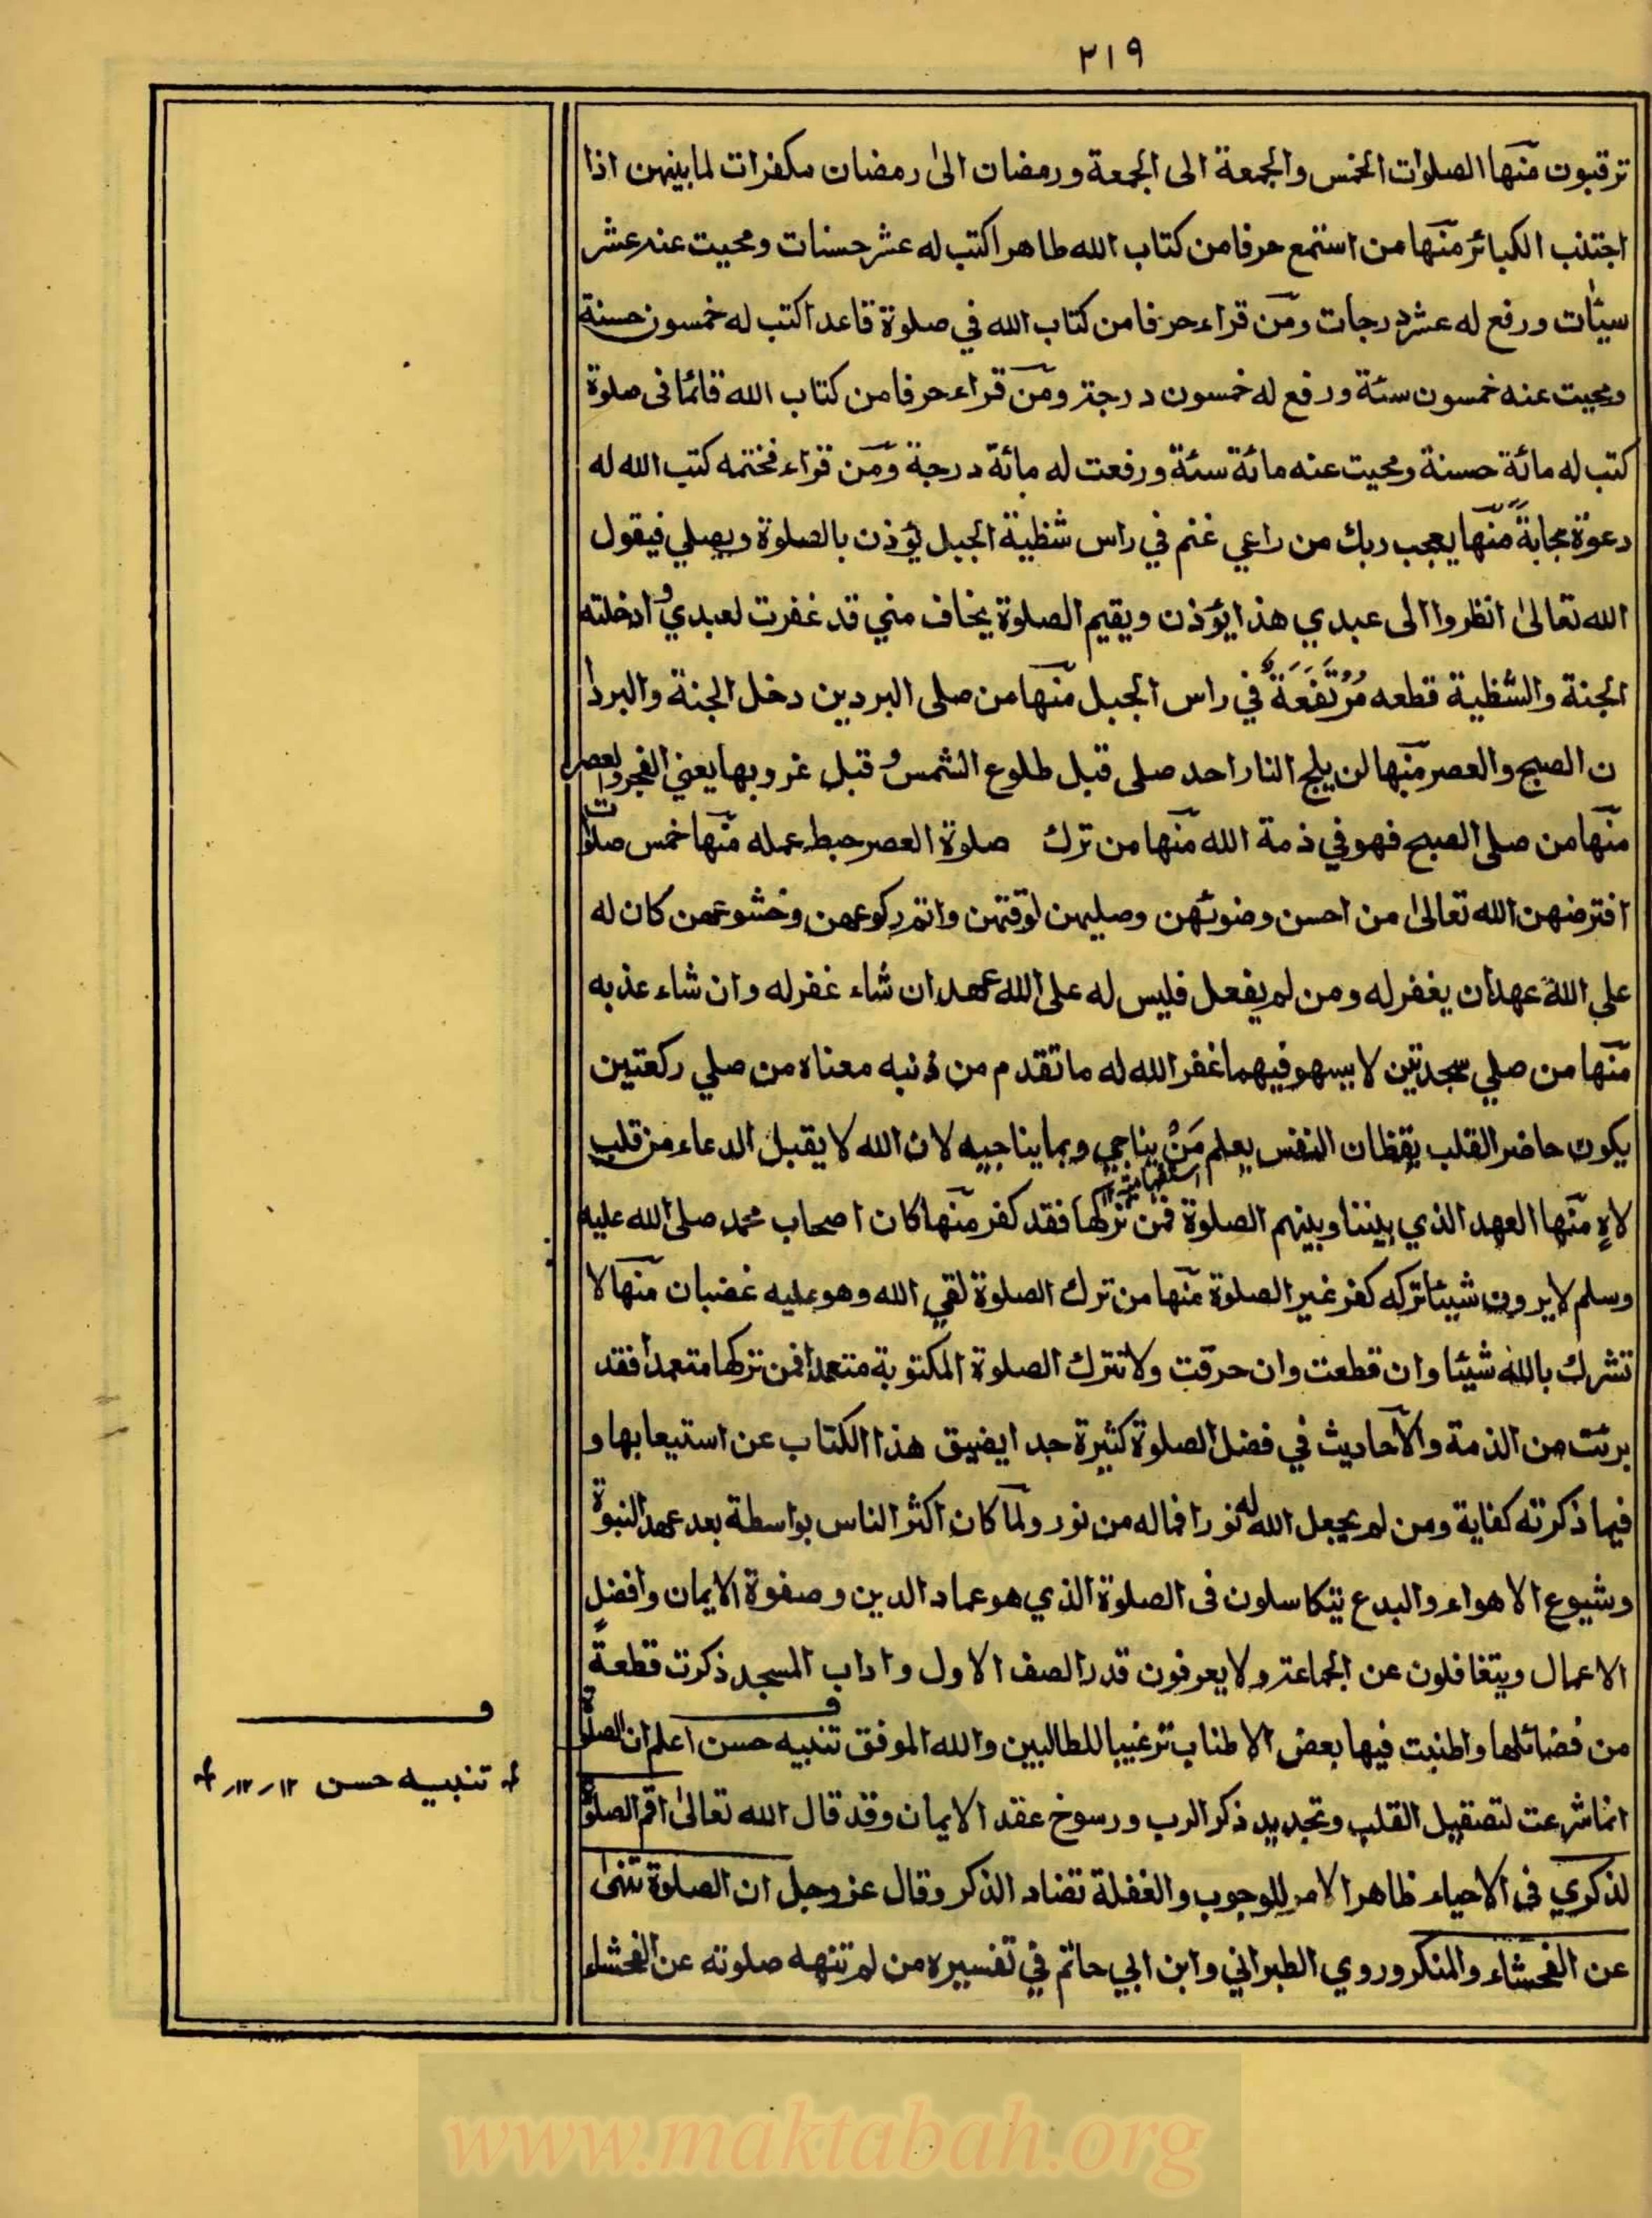 ٢١٩
ترقبون منها الصلوات الخمس والجمعة الى الجمعة ورمضان الى رمضان مكفرات لما بينهن اذا
اجتنب الكبائر منها من استمع حرفا من كتاب الله طاهرا كتب له عشر حسنات ومحيت عنه عشر
سيئات ورفع له عشر درجات ومن قراء حرفا من كتاب الله في صلوة قاعدا كتب له خمسون حسنة
ومحيت عنه خمسون سئة ورفع له خمسون درجة ومن قراء حرفا من كتاب الله قائما فى صلوة
كتب له مائة حسنة ومحيت عنه مائة سئة ورفعت له مائة درجة ومن قراء فختمه كتب الله له
دعوة مجابة منها يعجب ربك من راعي غنم في راس شظية الجبل يؤذن بالصلوة ويصلي فيقول
الله تعالى انظروا الى عبدي هذا يؤذن ويقيم الصلوة يخاف مني قد غفرت لعبدي وادخلته
الجنة والشظية قطعه مُرْتَفَعَةٌ في راس الجبل منها من صلى البردين دخل الجنة والبردا
ن الصبح والعصر منها لن يلج النار احد صلى قبل طلوع الشمس وقبل غروبها يعني الفجر والعصر
منها من صلى الصبح فهو في ذمة الله منها من ترك صلوة العصر حبط عمله منها خمس صلوات
افترضهن الله تعالى من احسن وضوئهن وصليهن لوقتهن واتم ركوعهن وخشوعهن كان له
على الله عهد ان يغفر له ومن لم يفعل فليس له على الله عهد ان شاء غفر له وان شاء عذبه
منها من صلي سجدتين لا يسهو فيهما غفر الله له ما تقدم من ذنبه معناه من صلي ركعتين
يكون حاضر القلب يقظان النفس يعلم مَنْ يناجي وبما يناجيه لان الله لا يقبل الدعاء من قلب
استفهامية ١٢
لاهٍ منها العهد الذي بيننا وبينهم الصلوة فمن تركها فقد كفر منها كان اصحاب محمد صلى الله عليه
وسلم لا يرون شيئا تركه كفر غير الصلوة منها من ترك الصلوة لقي الله وهو عليه غضبان منها لا
تشرك بالله شيئا وان قطعت وان حرقت ولا تترك الصلوة المكتوبة متعمدا فمن تركها متعمدا فقد
برئت من الذمة والآحاديث في فضل الصلوة كثيرة جدا يضيق هذا الكتاب عن استيعابها و
فيما ذكرته كفاية ومن لم يجعل الله له نورا فما له من نور ولما كان اكثر الناس بواسطة بعد عهد النبوة
وشيوع الاهواء والبدع يتكاسلون فى الصلوة الذي هو عماد الدين وصفوة الايمان وافضل
الاعمال ويتغافلون عن الجماعة ولا يعرفون قدر الصف الاول واداب المسجد ذكرت قطعةً
من فضائلها واطنبت فيها بعض الاطناب ترغيبا للطالبين والله الموفق تنبيه حسن اعلم ان الصلوة
انما شرعت لتصقيل القلب وتجديد ذكر الرب ورسوخ عقد الايمان وقد قال الله تعالى اقم الصلوة
لذكري فى الاحياء ظاهر الامر للوجوب والغفلة تضاد الذكر وقال عز وجل ان الصلوة تنهى
عن الفحشاء والمنكر وروي الطبراني وابن ابي حاتم في تفسيره من لم تنهه صلوته عن الفحشاء
ف
تنبيه حسن ١٢-١٢
www.maktabah.org